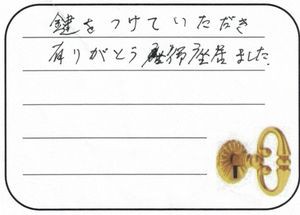 鍵をつけていただき
有りがとう御座居ました。